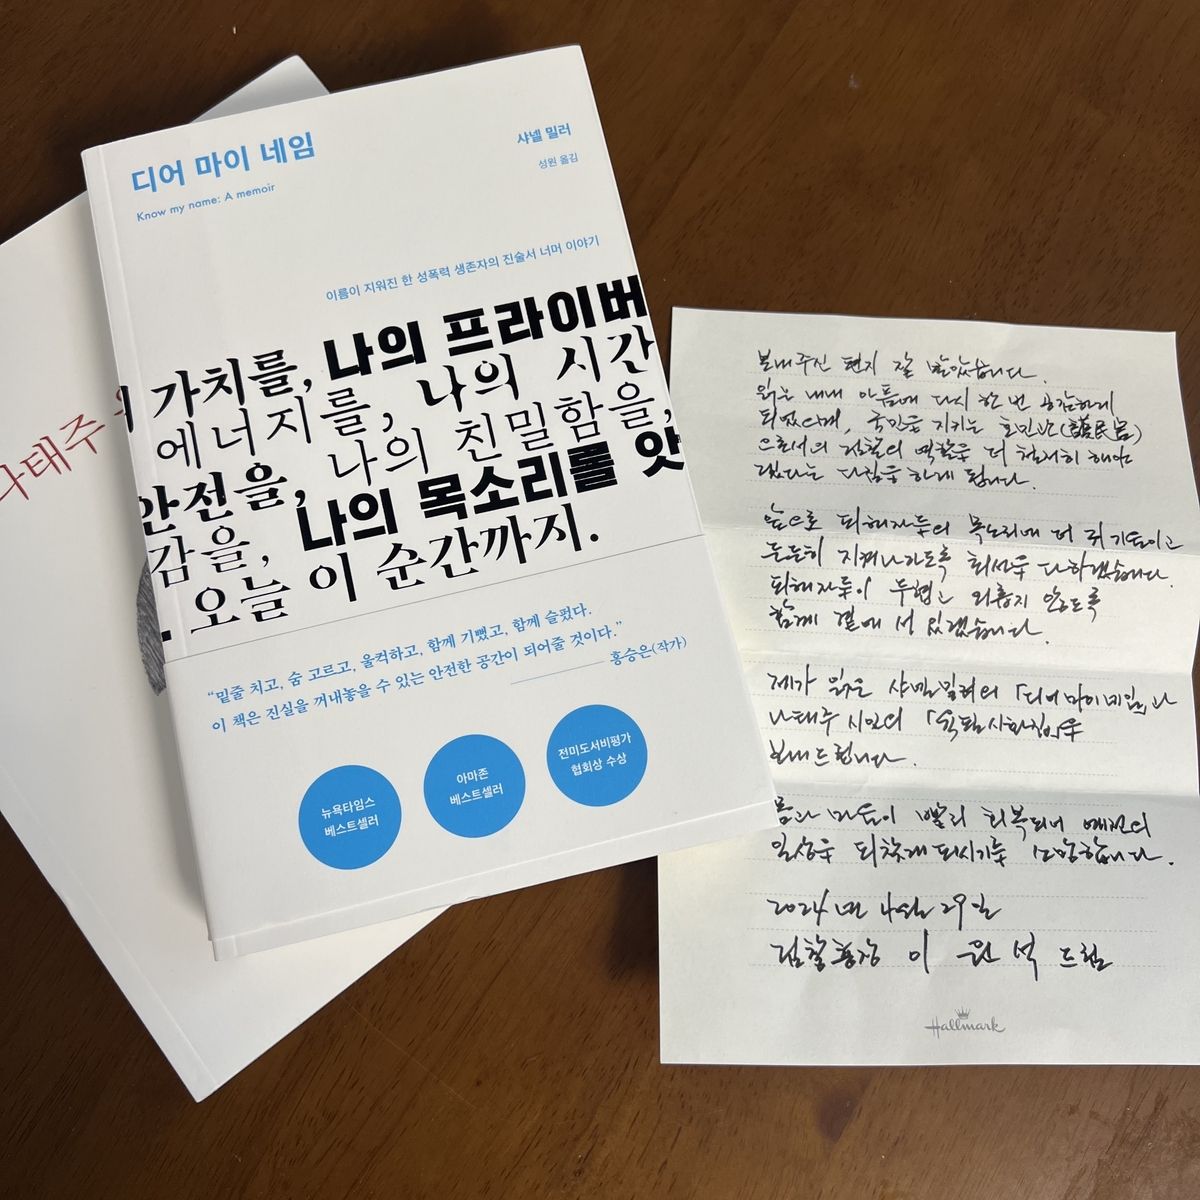 나태주
디어 마이 네임
Know my name: A memoir
샤넬 밀러
성원 옮김
이름이 지워진 한 성폭력 생존자의 진술서 너머 이야기
가치를, 나의 프라이버
에너지를, 나의 시간
안전을, 나의 친밀함을,
감을, 나의 목소리를 앗
. 오늘 이 순간까지.
“밑줄 치고, 숨 고르고, 울컥하고, 함께 기뻤고, 함께 슬펐다.
이 책은 진실을 꺼내놓을 수 있는 안전한 공간이 되어줄 것이다.”
홍승은(작가)
뉴욕타임스
베스트셀러
아마존
베스트셀러
전미도서비평가
협회상 수상
보내주신 편지 잘 받았습니다.
읽는 내내 아픔에 다시 한 번 공감하게
되었으며, 국민을 지키는 호민관(護民官)
으로서의 검찰의 역할을 더 철저히 해야
겠다는 다짐을 하게 됩니다.
앞으로 피해자들의 목소리에 더 귀 기울이고
든든히 지켜나가도록 최선을 다하겠습니다.
피해자들이 두렵고 외롭지 않도록
함께 곁에 서 있겠습니다.
제가 읽은 샤넬 밀러의 「디어 마이 네임」과
나태주 시인의 「육필시화집」을
보내드립니다.
몸과 마음이 빨리 회복되어 예전의
일상을 되찾게 되시기를 소망합니다.
2024년 4월 29일
검찰총장 이 원 석 드림
Hallmark